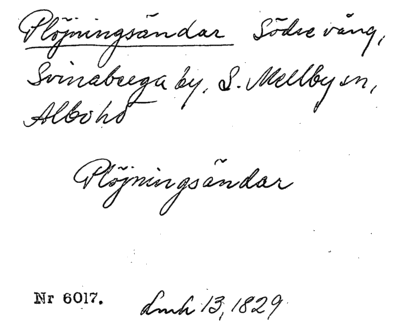 Plöjningsändar Södre vång,
Svinaberga by, S. Mellby sn,
Albo hd
Plöjningsändar
Nr 6017. Lmh 13, 1829